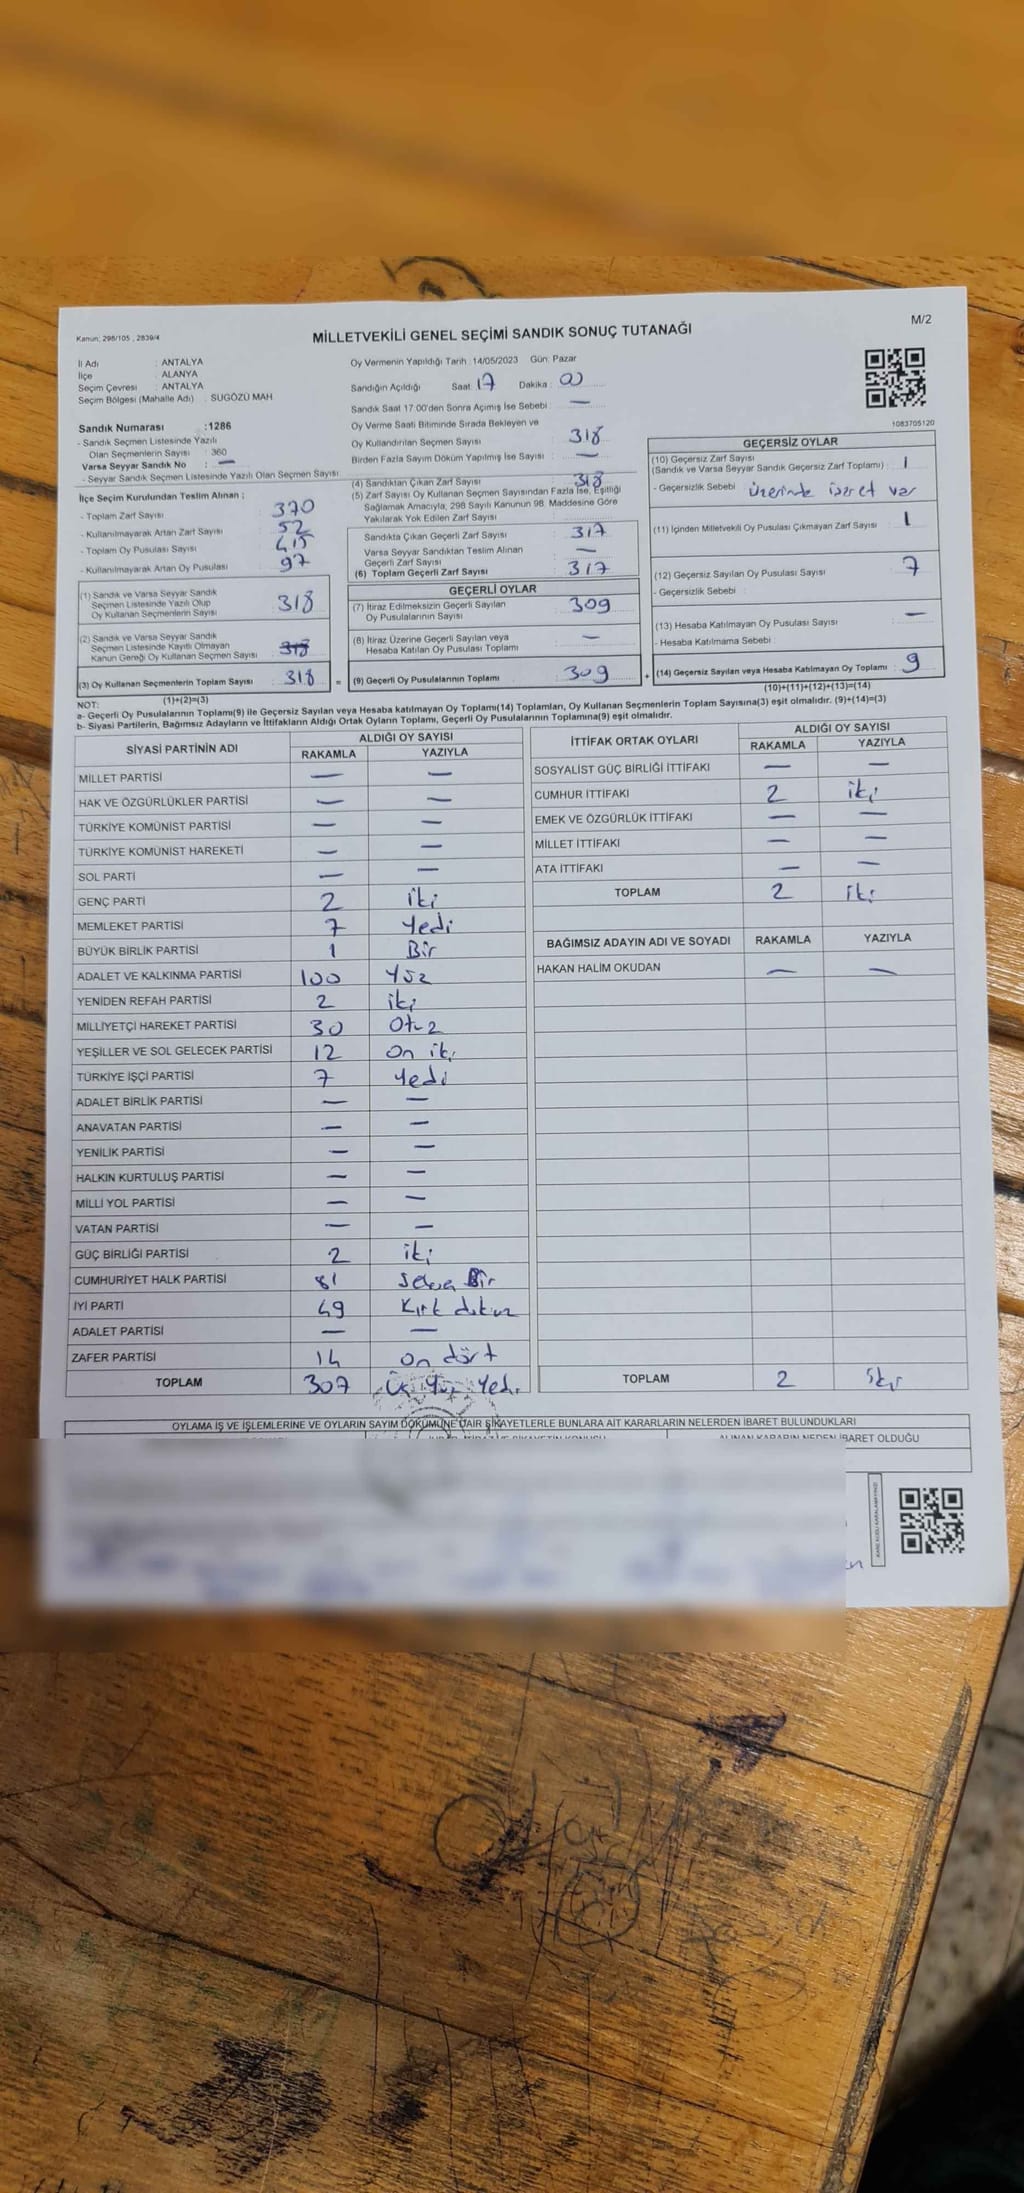 M/2
Kanun: 298/105 , 2839/4
MİLLETVEKİLİ GENEL SEÇİMİ SANDIK SONUÇ TUTANAĞI
İl Adı : ANTALYA
İlçe : ALANYA
Seçim Çevresi : ANTALYA
Seçim Bölgesi (Mahalle Adı) : SUGÖZÜ MAH
Sandık Numarası :1286
- Sandık Seçmen Listesinde Yazılı
Olan Seçmenlerin Sayısı : 360
Varsa Seyyar Sandık No : —
- Seyyar Sandık Seçmen Listesinde Yazılı Olan Seçmen Sayısı
İlçe Seçim Kurulundan Teslim Alınan ;
- Toplam Zarf Sayısı 370
- Kullanılmayarak Artan Zarf Sayısı 52
- Toplam Oy Pusulası Sayısı 415
- Kullanılmayarak Artan Oy Pusulası 97
(1) Sandık ve Varsa Seyyar Sandık
Seçmen Listesinde Yazılı Olup
Oy Kullanan Seçmenlerin Sayısı 318
(2) Sandık ve Varsa Seyyar Sandık
Seçmen Listesinde Kayıtlı Olmayan
Kanun Gereği Oy Kullanan Seçmen Sayısı :
(3) Oy Kullanan Seçmenlerin Toplam Sayısı : 318 =
(1)+(2)=(3)
Oy Vermenin Yapıldığı Tarih :14/05/2023 Gün: Pazar
Sandığın Açıldığı Saat: 17 Dakika : 00
Sandık Saat 17:00'den Sonra Açımış İse Sebebi : —
Oy Verme Saati Bitiminde Sırada Bekleyen ve
Oy Kullandırılan Seçmen Sayısı 318
Birden Fazla Sayım Döküm Yapılmış İse Sayısı : —
(4) Sandıktan Çıkan Zarf Sayısı 318
(5) Zarf Sayısı Oy Kullanan Seçmen Sayısından Fazla İse, Eşitliği
Sağlamak Amacıyla, 298 Sayılı Kanunun 98. Maddesine Göre
Yakılarak Yok Edilen Zarf Sayısı
Sandıkta Çıkan Geçerli Zarf Sayısı 317
Varsa Seyyar Sandıktan Teslim Alınan
Geçerli Zarf Sayısı —
(6) Toplam Geçerli Zarf Sayısı 317
GEÇERLİ OYLAR
(7) İtiraz Edilmeksizin Geçerli Sayılan
Oy Pusulalarının Sayısı 309
(8) İtiraz Üzerine Geçerli Sayılan veya
Hesaba Katılan Oy Pusulası Toplamı —
(9) Geçerli Oy Pusulalarının Toplamı 309 +
1083705120
GEÇERSİZ OYLAR
(10) Geçersiz Zarf Sayısı
(Sandık ve Varsa Seyyar Sandık Geçersiz Zarf Toplamı) : 1
- Geçersizlik Sebebi : üzerinde işaret var
(11) İçinden Milletvekili Oy Pusulası Çıkmayan Zarf Sayısı : 1
(12) Geçersiz Sayılan Oy Pusulası Sayısı 7
- Geçersizlik Sebebi :
(13) Hesaba Katılmayan Oy Pusulası Sayısı —
- Hesaba Katılmama Sebebi :
(14) Geçersiz Sayılan veya Hesaba Katılmayan Oy Toplamı : 9
(10)+(11)+(12)+(13)=(14)
NOT:
a- Geçerli Oy Pusulalarının Toplamı(9) ile Geçersiz Sayılan veya Hesaba katılmayan Oy Toplamı(14) Toplamları, Oy Kullanan Seçmenlerin Toplam Sayısına(3) eşit olmalıdır. (9)+(14)=(3)
b- Siyasi Partilerin, Bağımsız Adayların ve İttifakların Aldığı Ortak Oyların Toplamı, Geçerli Oy Pusulalarının Toplamına(9) eşit olmalıdır.
SİYASİ PARTİNİN ADI ALDIĞI OY SAYISI
RAKAMLA YAZIYLA
MİLLET PARTİSİ — —
HAK VE ÖZGÜRLÜKLER PARTİSİ — —
TÜRKİYE KOMÜNİST PARTİSİ — —
TÜRKİYE KOMÜNİST HAREKETİ — —
SOL PARTİ — —
GENÇ PARTİ 2 iki
MEMLEKET PARTİSİ 7 Yedi
BÜYÜK BİRLİK PARTİSİ 1 Bir
ADALET VE KALKINMA PARTİSİ 100 Yüz
YENİDEN REFAH PARTİSİ 2 iki
MİLLİYETÇİ HAREKET PARTİSİ 30 Otuz
YEŞİLLER VE SOL GELECEK PARTİSİ 12 on iki
TÜRKİYE İŞÇİ PARTİSİ 7 Yedi
ADALET BİRLİK PARTİSİ — —
ANAVATAN PARTİSİ — —
YENİLİK PARTİSİ — —
HALKIN KURTULUŞ PARTİSİ — —
MİLLİ YOL PARTİSİ — —
VATAN PARTİSİ — —
GÜÇ BİRLİĞİ PARTİSİ 2 iki
CUMHURİYET HALK PARTİSİ 81 Seksen Bir
İYİ PARTİ 49 Kırk dokuz
ADALET PARTİSİ — —
ZAFER PARTİSİ 14 on dört
TOPLAM 307 Üç Yüz Yedi
İTTİFAK ORTAK OYLARI ALDIĞI OY SAYISI
RAKAMLA YAZIYLA
SOSYALİST GÜÇ BİRLİĞİ İTTİFAKI — —
CUMHUR İTTİFAKI 2 iki
EMEK VE ÖZGÜRLÜK İTTİFAKI — —
MİLLET İTTİFAKI — —
ATA İTTİFAKI — —
TOPLAM 2 iki
BAĞIMSIZ ADAYIN ADI VE SOYADI RAKAMLA YAZIYLA
HAKAN HALİM OKUDAN — —
TOPLAM 2 iki
OYLAMA İŞ VE İŞLEMLERİNE VE OYLARIN SAYIM DÖKÜMÜNE DAİR ŞİKAYETLERLE BUNLARA AİT KARARLARIN NELERDEN İBARET BULUNDUKLARI
ALINAN KARARIN NEDEN İBARET OLDUĞU